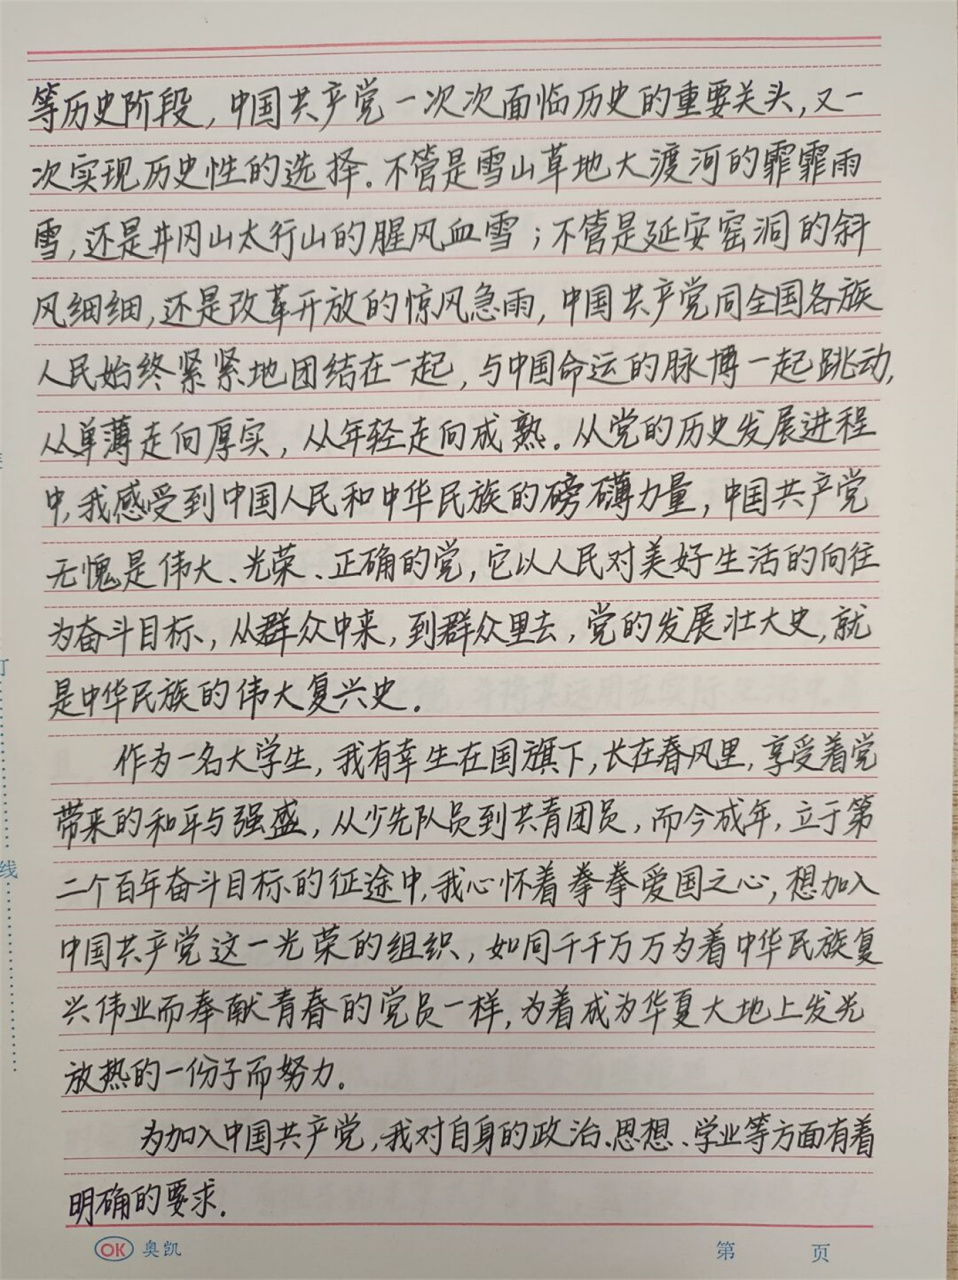 等历史阶段，中国共产党一次次面临历史的重要关头，又一
次实现历史性的选择。不管是雪山草地大渡河的霏霏雨
雪，还是井冈山太行山的腥风血雪；不管是延安窑洞的斜
风细细，还是改革开放的惊风急雨，中国共产党同全国各族
人民始终紧紧地团结在一起，与中国命运的脉博一起跳动，
从单薄走向厚实，从年轻走向成熟。从党的历史发展进程
中，我感受到中国人民和中华民族的磅礴力量，中国共产党
无愧是伟大、光荣、正确的党，它以人民对美好生活的向往
为奋斗目标，从群众中来，到群众里去，党的发展壮大史，就
是中华民族的伟大复兴史。
作为一名大学生，我有幸生在国旗下，长在春风里，享受着党
带来的和平与强盛，从少先队员到共青团员，而今成年，立于第
二个百年奋斗目标的征途中，我心怀着拳拳爱国之心，想加入
中国共产党这一光荣的组织，如同千千万万为着中华民族复
兴伟业而奉献青春的党员一样，为着成为华夏大地上发光
放热的一份子而努力。
为加入中国共产党，我对自身的政治、思想、学业等方面有着
明确的要求。
订
线
OK 奥凯
第 页